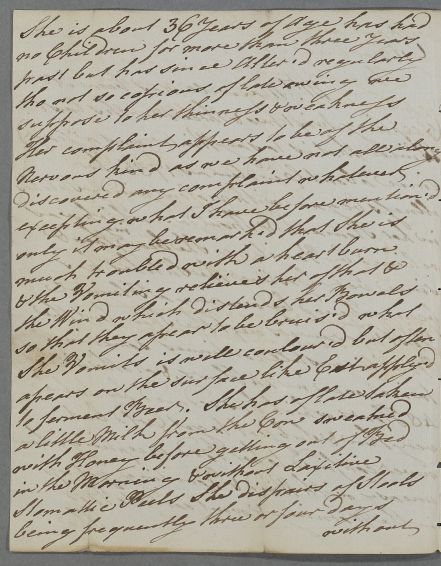 She is about 36 Years of age has had
no Children for more than three Years
past but has since Alter'd regularly
tho not so copious of late owing we
suppose to her thinness & weakness
Her complaint appears to be of the
Nervous kind as we have not all along
discovered any complaint whatever
excepting what I have before mention'd
only it may be remark'd that she is
much troubled with a heart burn
& the Vomiting relieves her of that &
the Wind which distends her Bowels
so that they appear to be bruis'd what
She Vomits is well colour'd but often
apears on the surface like East applyd
to ferment Beer. She has of late taken
a little Milk from the Cow sweatned
with Honey before getting out of Bed
in the Morning & without Laxitive
Stomatic Pills She dispairs of Stools
being frequently three or four Days
without